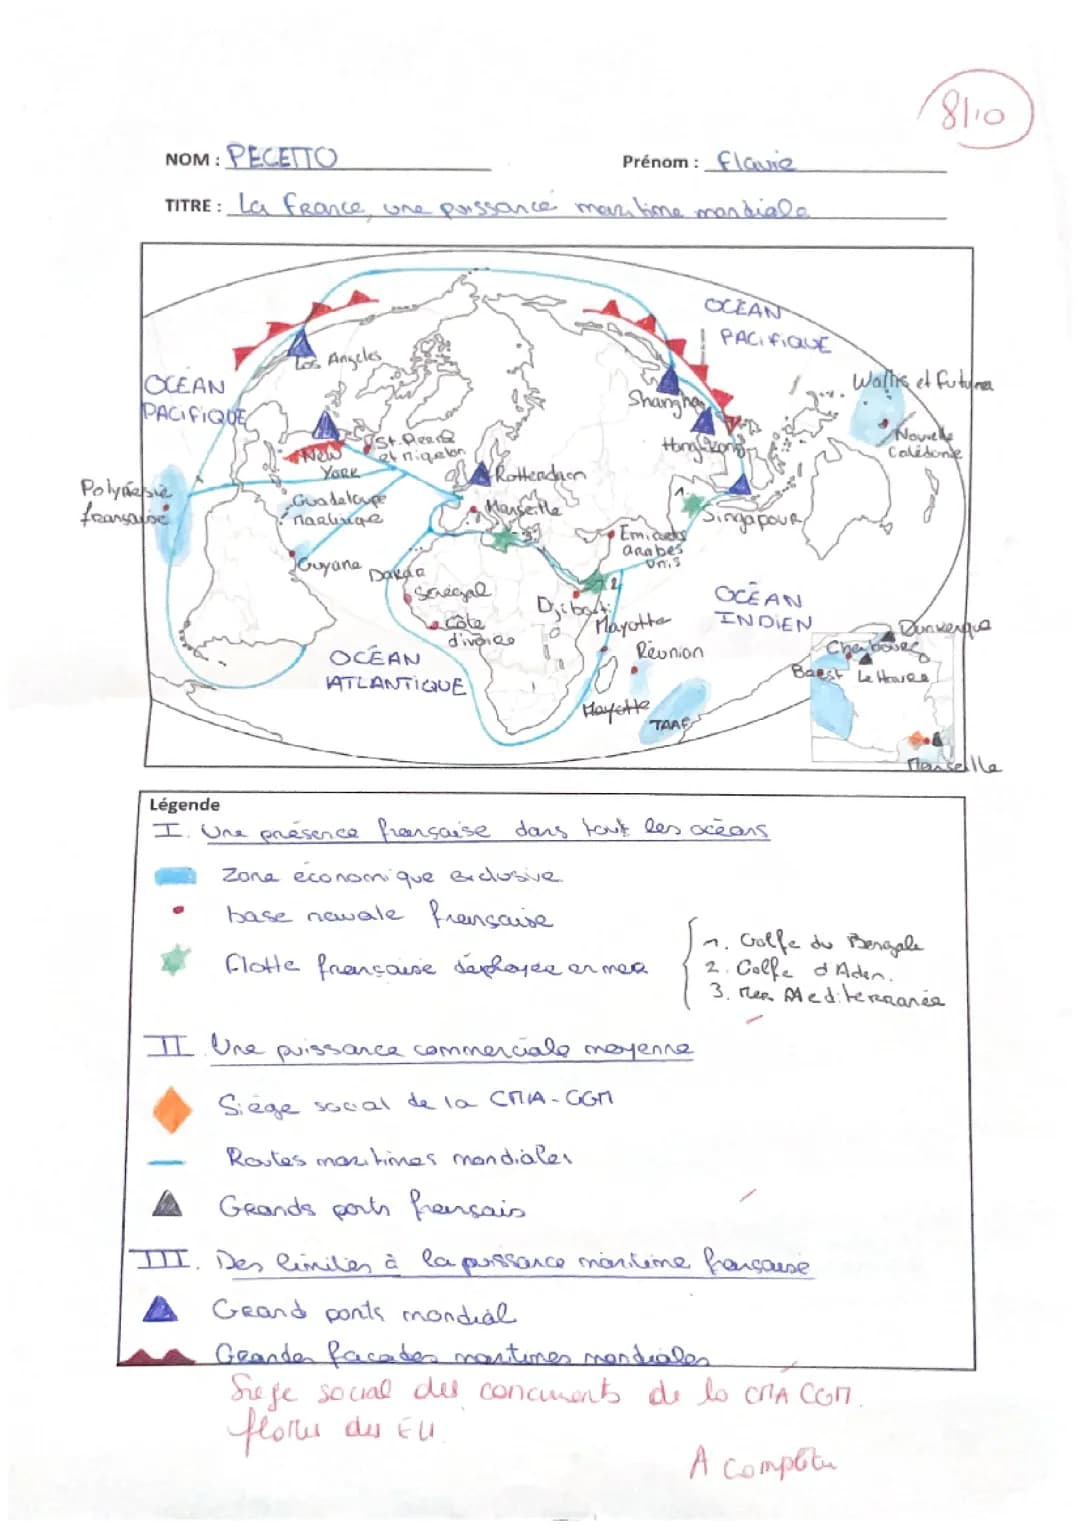 8/10
NOM : PECETTO
Prénom : Flavie
TITRE : La France, une puissance maritime mondiale
OCÉAN
PACIFIQUE
Los Angeles
OCÉAN
PACIFIQUE
Wallis et Futuna
Shanghai
Nouvelle
Calédonie
Hong Kong
St. Pierre
et Miquelon
New
York
Rotterdam
Polynésie
française
Guadeloupe
Marseille
1.
Singapour
Emirats
arabes
Unis
3
Guyane
Dakar
Sénégal
2
Djibouti
OCÉAN
INDIEN
Mayotte
Côte
d'ivoire
Réunion
Dunkerque
Cherbourg
Brest
Le Havre
OCÉAN
ATLANTIQUE
Mayotte
TAAF
Marseille
Légende
I. Une présence française dans tout les océans
Zone économique exclusive
base navale française
Flotte française déployée en mer
1. Golfe du Bengale
2. Golfe d'Aden.
3. Mer Mediterranée
II Une puissance commerciale moyenne
Siège social de la CMA-CGM
Routes maritimes mondiales
Grands ports français
III. Des limites à la puissance maritime française
Grand ports mondial
Grandes facades maritimes mondiales
Siege social des concurrents de la CMA CGM.
flottes des EU
A compléter